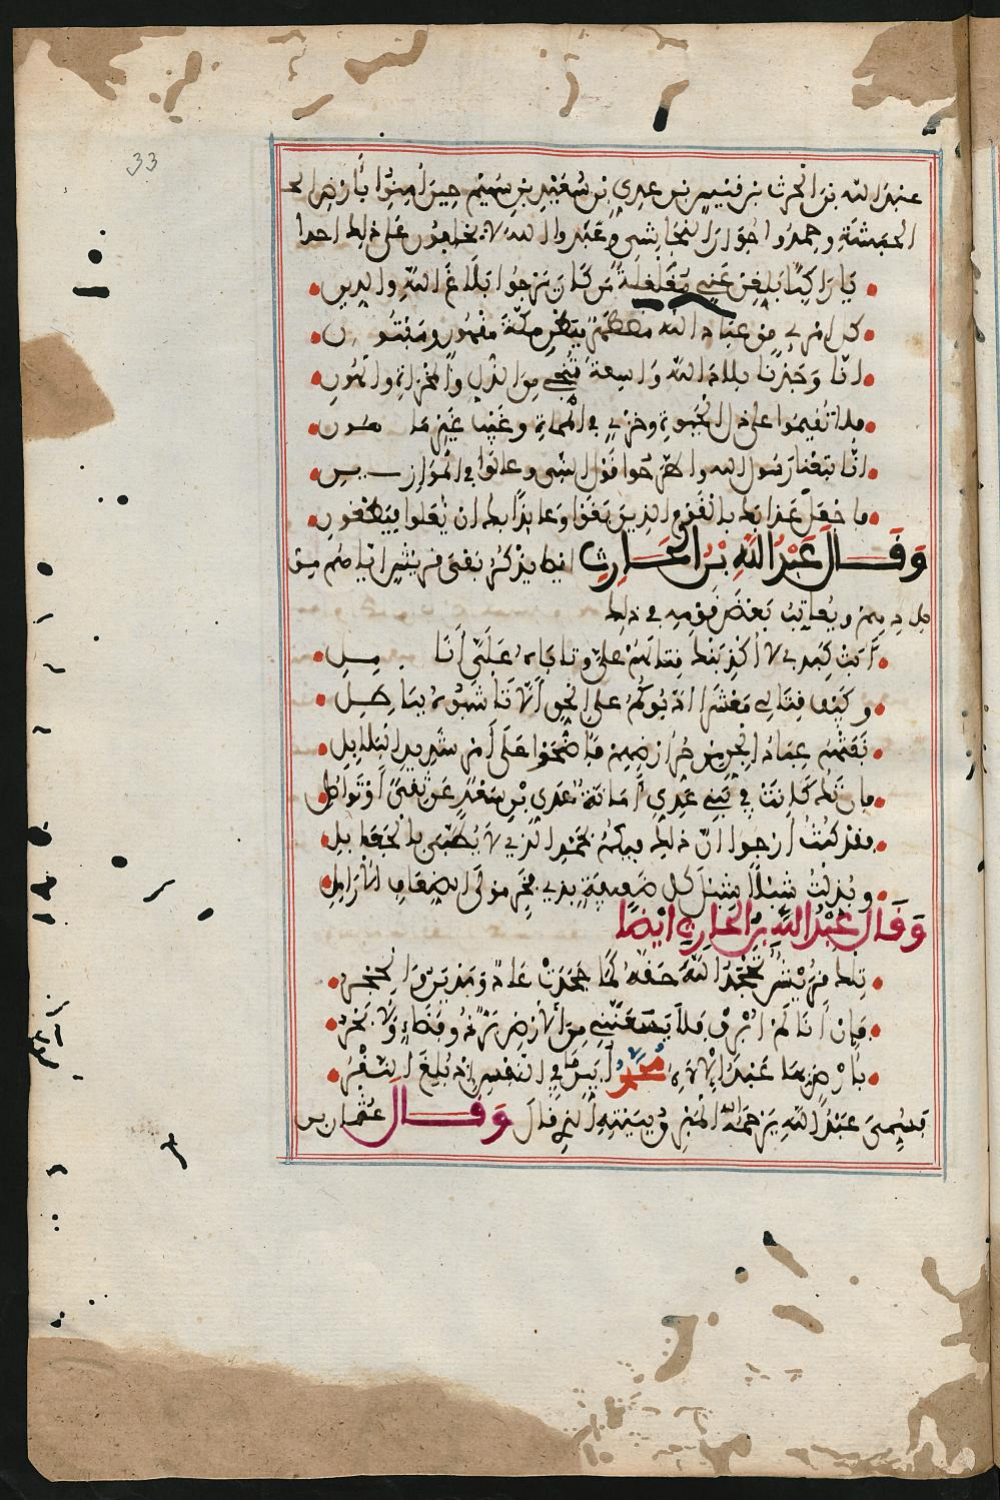 33
عبد الله بن الحرث بن قيس بن عدي بن سعيد بن سهم حين أمنوا بأرض الح
الحبشة وحمدوا جوار النجاشي وعبدوا الله لا يخافون على ذلك احدا
يا راكبا بلغن عني مغلغلة من كان يرجوا بلاغ الله والدين
كل امرئ من عباد الله مضطهد ببطن مكة مقهور ومفتون
انا وجدنا بلاد الله واسعة تنجي من الذل والمخزاة والهون
فلا تقيموا على ذل الحيوة وخزي في الممات وعيب غير مامون
انا تبعنا رسول الله واطرحوا قول النبي وعالوا في الموازين
فاجعل عذابك بالقوم الذين بغوا وعائذا بك ان يعلوا فيطغون
وقال عبد الله بن الحارث ايضا يذكر نفي قريش اياهم من
بلادهم ويعاتب بعض قومه في ذلك
أبت كبدي لا أكذبنك قتالهم علي وتاباه علي أناملي
وكيف قتالي معشرا ادبوكم على الحق ألا تاشبوه بباطل
نفتهم عباد الجن من حر أرضهم فاضحوا على أمر شديد البلابل
فان تك كانت في بني عدي أمانة عدي بن سعد عن تقى أو تواصل
فقد كنت أرجوا ان ذلك فيكم بحمد الذي لا يطبى بالجعايل
وبدلت شبلا شبل كل ضعيفة بذي فجر مأوى الضعاف الأرامل
وقال عبد الله بن الحارث ايضا
تلك قريش تجحد الله حقه كما جحدت عاد ومدين والحجر
فان أنا لم ابرق فلا يسعنني من الأرض بر ذو فضاء ولا بحر
بأرض بها عبد الإلاه محمد أبين ما في النفس إذ بلغ النقر
فسمي عبد الله يرحمه الله المبرق ببيته الذي قال وقال عثمان بن